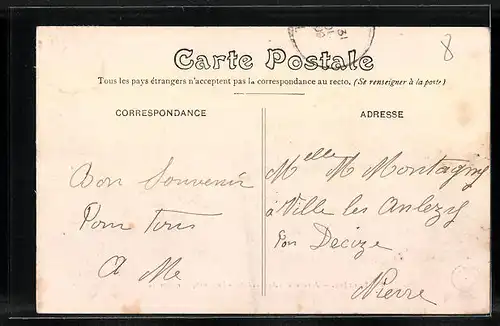 8
Carte Postale
Tous les pays étrangers n'acceptent pas la correspondance au recto. (Se renseigner à la poste)
CORRESPONDANCE
ADRESSE
Bon Souvenir
Pour Tous
A Me
Melle M Montagny
à Ville les Anlezy
Par Decize
Nièvre